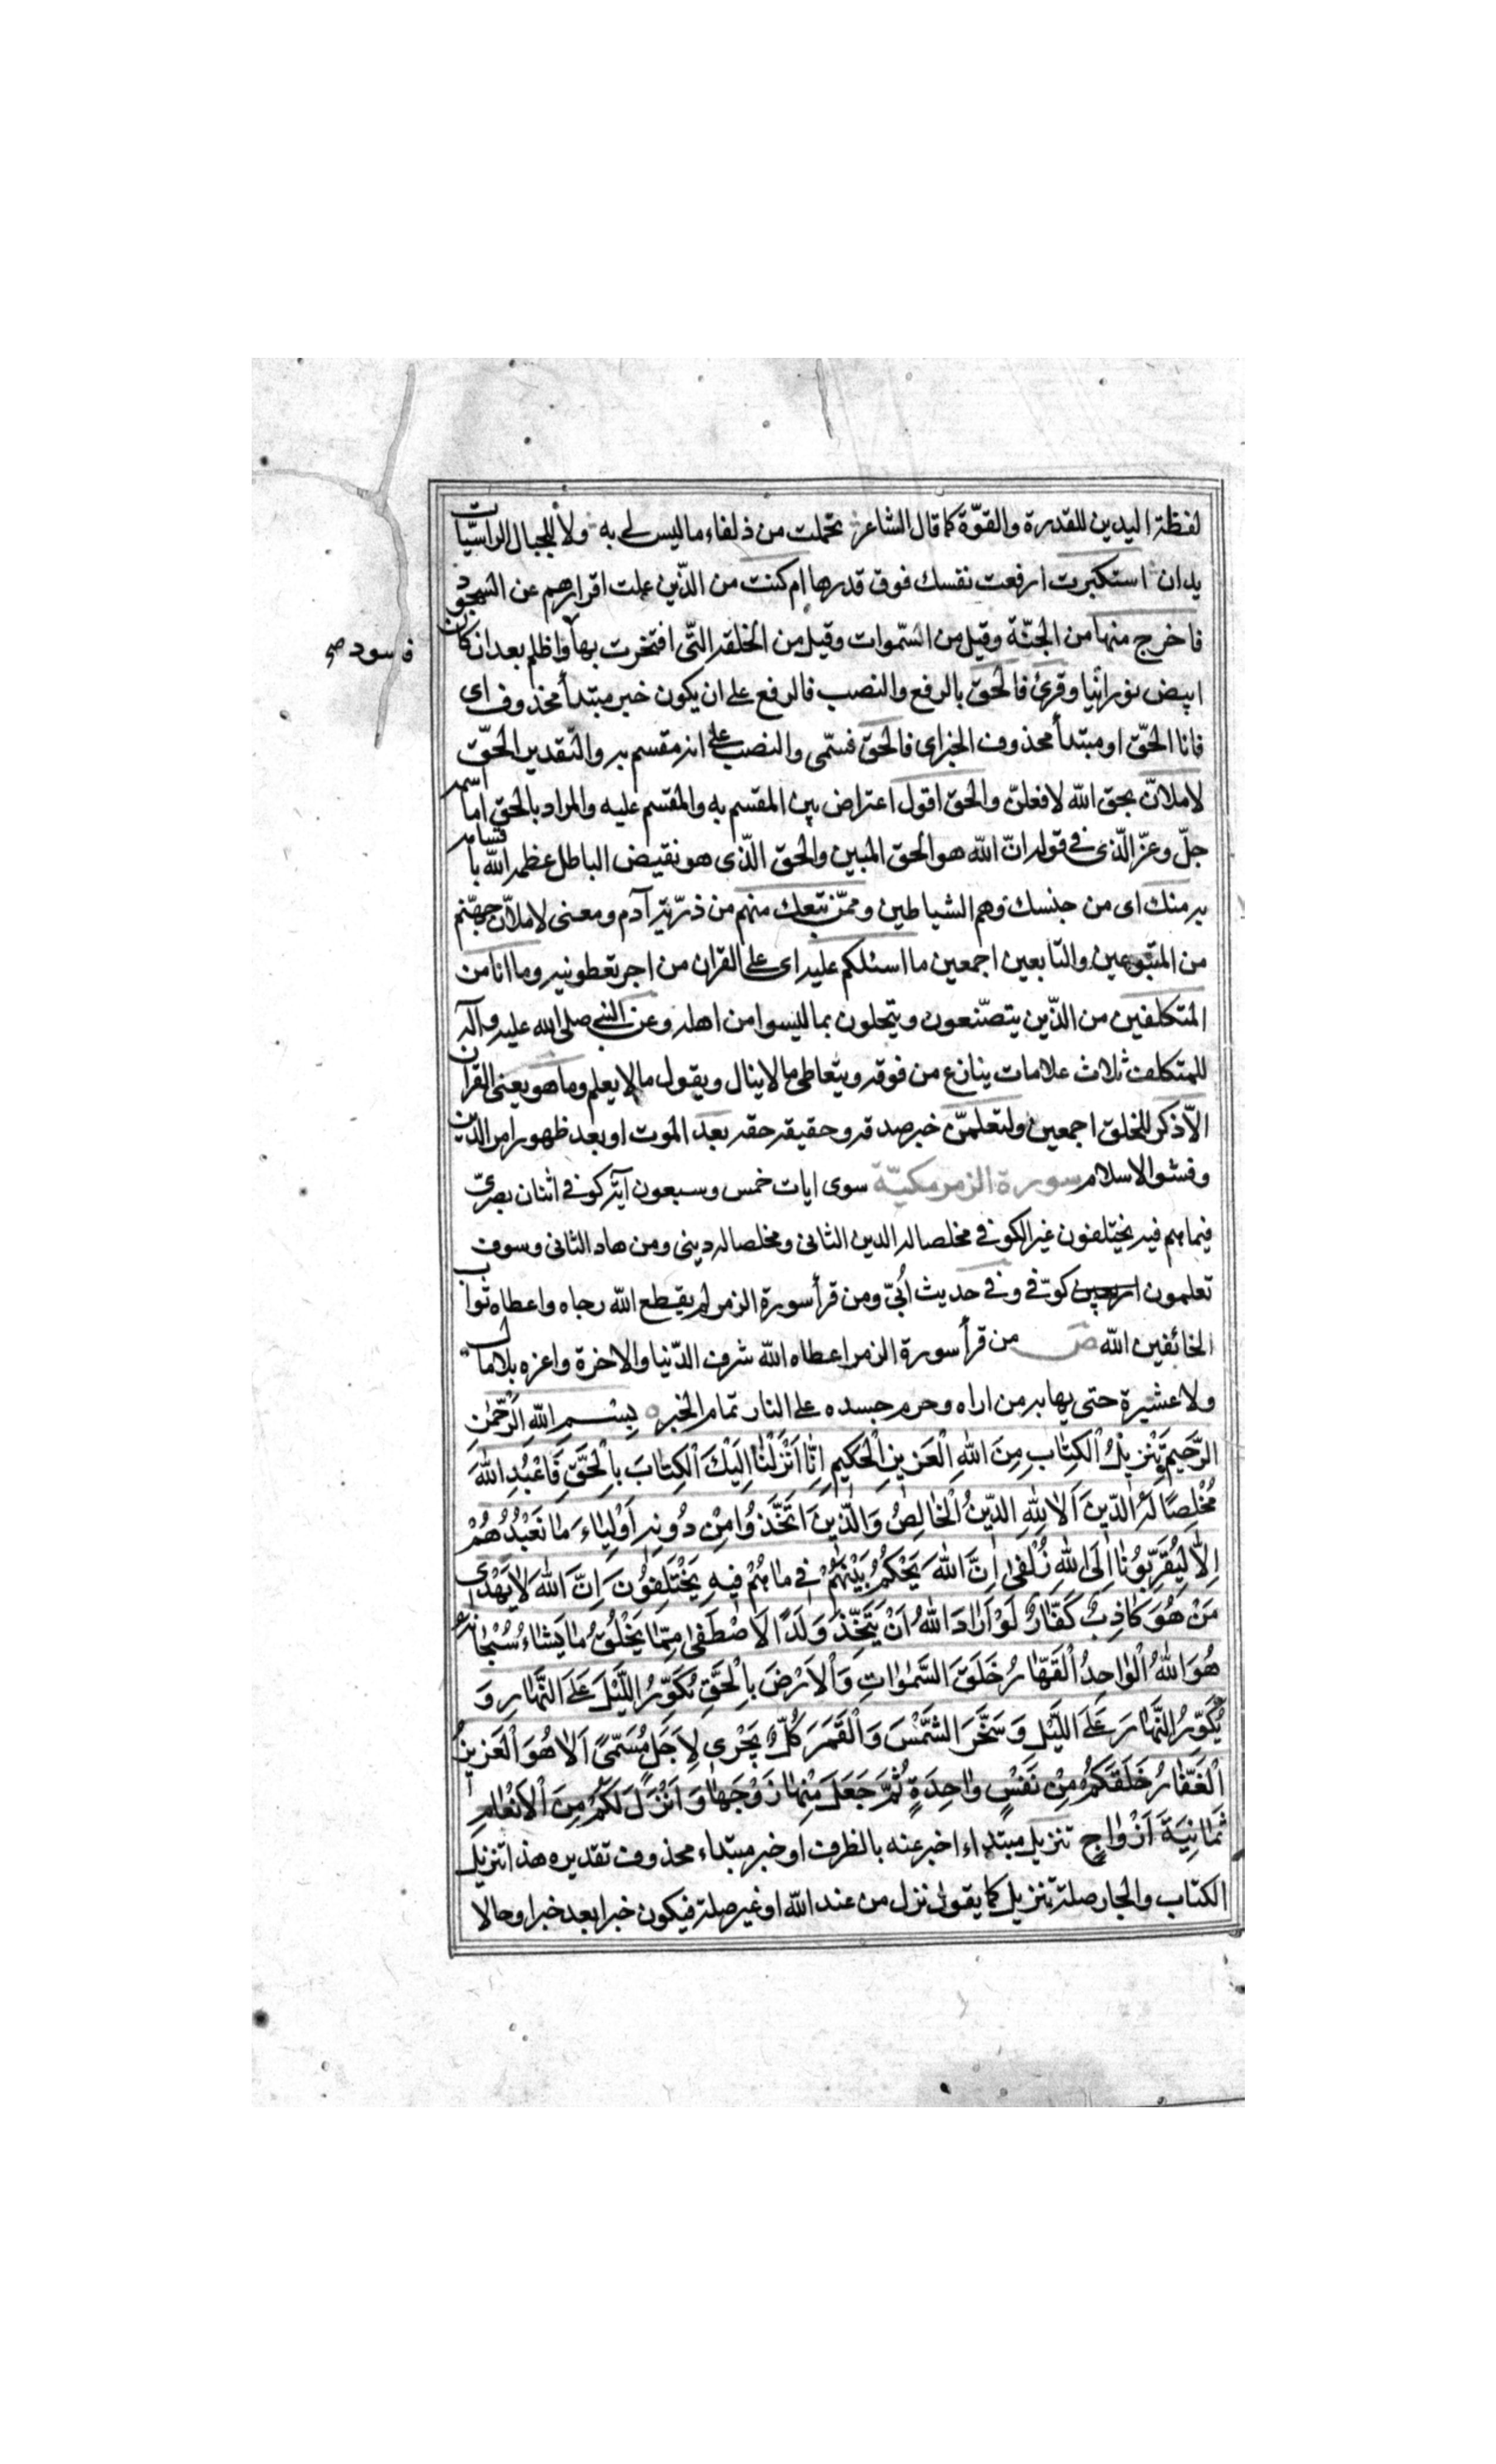 لفظة اليدين للقدرة والقوّة كما قال الشاعر تحملت من ذلفاء ما ليس لى به ولا للجبال الراسيّات
يدان استكبرت ارفعت نفسك فوق قدرها ام كنت من الّذين علت اقرارهم عن السّجود
فاخرج منها من الجنّة وقيل من السّموات وقيل من الخلقه التّى افتخرت بها واظلم بعد ان كان
ف سود صح
ابيض نورانيا وقرئ فالحق بالرفع والنصب فالرفع على ان يكون خبر مبتدأ محذوف اى
فانا الحّق او مبتدأ محذوف الخبر اى فالحق قسمى والنصب على انه مقسم به والتّقدير الحّق
لاملانّ بحق الله لافعلنّ والحق اقول اعتراض بين المقسم به والمقسم عليه والمراد بالحق امّا اسمه
جلّ وعزّ الّذى فى قوله انّ الله هو الحق المبين والحق الّذى هو نقيض الباطل عظمه الله باقسامه
به منك اى من جنسك وهم الشياطين وممّن تبعك منهم من ذرّيّة آدم ومعنى لاملانّ جهنّم
من المتبوعين والتابعين اجمعين ما اسئلكم عليه اى على القران من اجر تعطونيه وما انا من
المتكلفين من الّذين يتصّنعون ويتحلون بما ليسوا من اهله وعن النبى صلى الله عليه وآله
للمتكلف ثلاث علامات ينازع من فوقه ويتعاطى ما لا ينال ويقول ما لا يعلم وما هو يعنى القران
الّا ذكر للخلق اجمعين ولتعلمنّ خبر صدقه وحقيقه حقه بعد الموت او بعد ظهور امر الدّين
وفشو الاسلام سورة الزمر مكيّة سوى ايات خمس وسبعون آية كوفى اثنان بصرىّ
فيما هم فيه يختلفون غير الكوفى مخلصا له الدين الثانى ومخلصا له دينى ومن هاد الثانى وسوف
تعلمون اربعهن كوّفى وفى حديث اُبىّ ومن قرأ سورة الزمر لم يقطع الله رجاه واعطاه ثواب
الخائفين الله ص من قرأ سورة الزمر اعطاه الله شرف الدّنيا والاخرة واعزه بلا مال
ولا عشيرة حتى يهابه من اراه وحرم جسده على النار تمام الخبر ه بِسْمِ اللهِ الرَّحْمٰنِ
الرَّحيمِ تَنْزيلُ الْكِتابِ مِنَ اللهِ الْعَزيزِ الْحَكيمِ اِنّا اَنْزَلْنا اِلَيْكَ الْكِتابَ بِالْحَقِّ فَاعْبُدِ اللهَ
مُخْلِصًا لَهُ الدّينَ اَلا لِلّهِ الدّينُ الْخالِصُ وَالَّذينَ اتَّخَذُوا مِنْ دُونِهِ اَوْلِياءَ ما نَعْبُدُهُمْ
اِلّا لِيُقَرِّبُونا اِلَى اللهِ زُلْفى اِنَّ اللهَ يَحْكُمُ بَيْنَهُمْ فى ما هُمْ فيهِ يَخْتَلِفُونَ اِنَّ اللهَ لا يَهْدى
مَنْ هُوَ كاذِبٌ كَفّارٌ لَوْ اَرادَ اللهُ اَنْ يَتَّخِذَ وَلَدًا لَاصْطَفى مِمّا يَخْلُقُ ما يَشاءُ سُبْحانَهُ
هُوَ اللهُ الْواحِدُ الْقَهّارُ خَلَقَ السَّمٰواتِ وَالْاَرْضَ بِالْحَقِّ يُكَوِّرُ اللَّيْلَ عَلَى النَّهارِ وَ
يُكَوِّرُ النَّهارَ عَلَى اللَّيْلِ وَسَخَّرَ الشَّمْسَ وَالْقَمَرَ كُلٌّ يَجْرى لِاَجَلٍ مُسَمًّى اَلا هُوَ الْعَزيزُ
الْغَفّارُ خَلَقَكُمْ مِنْ نَفْسٍ واحِدَةٍ ثُمَّ جَعَلَ مِنْها زَوْجَها وَاَنْزَلَ لَكُمْ مِنَ الْاَنْعامِ
ثَمانِيَةَ اَزْواجٍ تنزيل مبتداء اخبر عنه بالظرف او خبر مبتداء محذوف تقديره هذا تنزيل
الكتاب والجار صلة تنزيل كما يقول نزل من عند الله او غير صلة فيكون خبرا بعد خبر او حالا